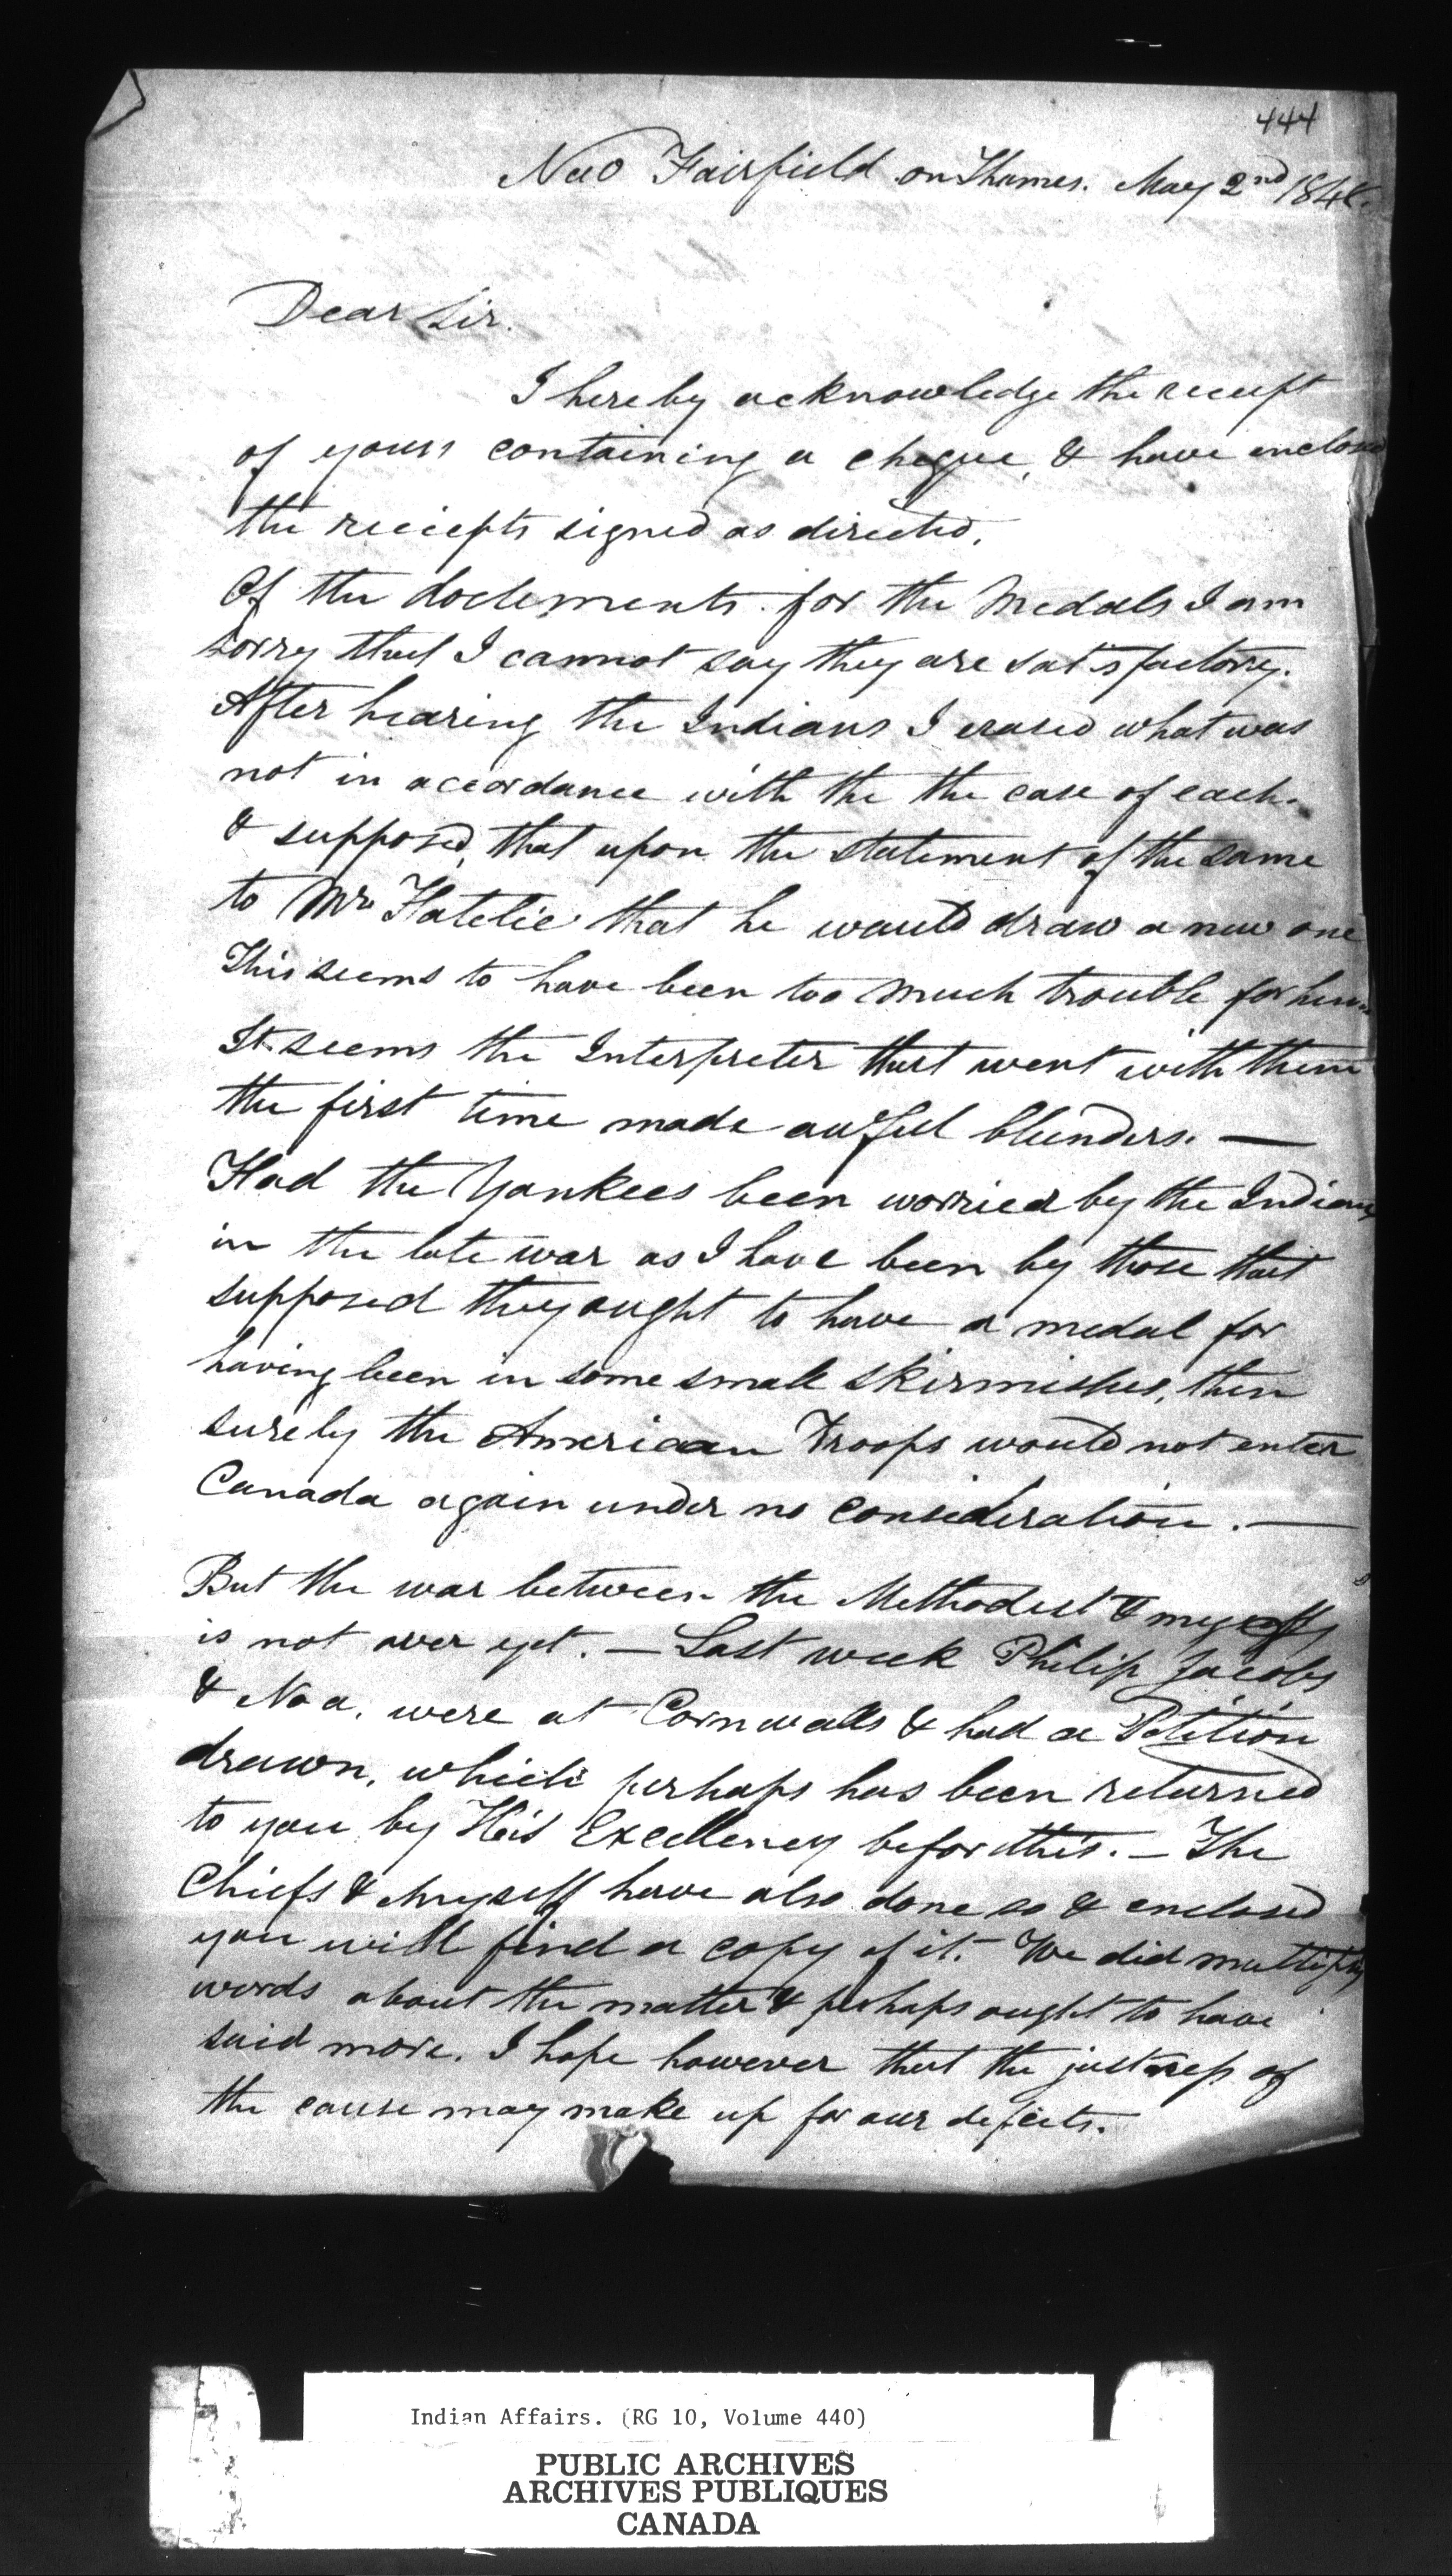 444
New Fairfield on Thames. May 2nd 184
Dear Sir.
I hereby acknowledge the receipt
of yours containing a cheque, & have enclosed
the reciepts signed as directed.
Of the documents for the Medals I am
sorry that I cannot say they are satisfactory.
After hearing the Indians I erased what was
not in accordance with the the case of each.
& supposed, that upon the statement of the same
to Mr that he would draw a new one
This seems to have been too much trouble for him
It seems the Interpreter that went with them
the first time made awful blunders. —
Had the Yankees been worried by the Indians
in the late war as I have been by those that
supposed they ought to have a medal for
having been in some small skirmishes, then
surely the American Troops would not enter
Canada again under no consideration. —
But the war between the Methodist & myself
is not over yet. — Last week Philip Jacobs
& Noa, were at Cornwalls & had a Petition
drawn, which perhaps has been returned
to you by His Excellency befor this. — The
Chiefs & Myself have also done so & enclosed
you will find a copy of it. We did multiply
words about the matter & perhaps ought to have
said more. I hope however that the justness of
the cause may make up for our defects.
Indian Affairs. (RG 10, Volume 440)
PUBLIC ARCHIVES
ARCHIVES PUBLIQUES
CANADA